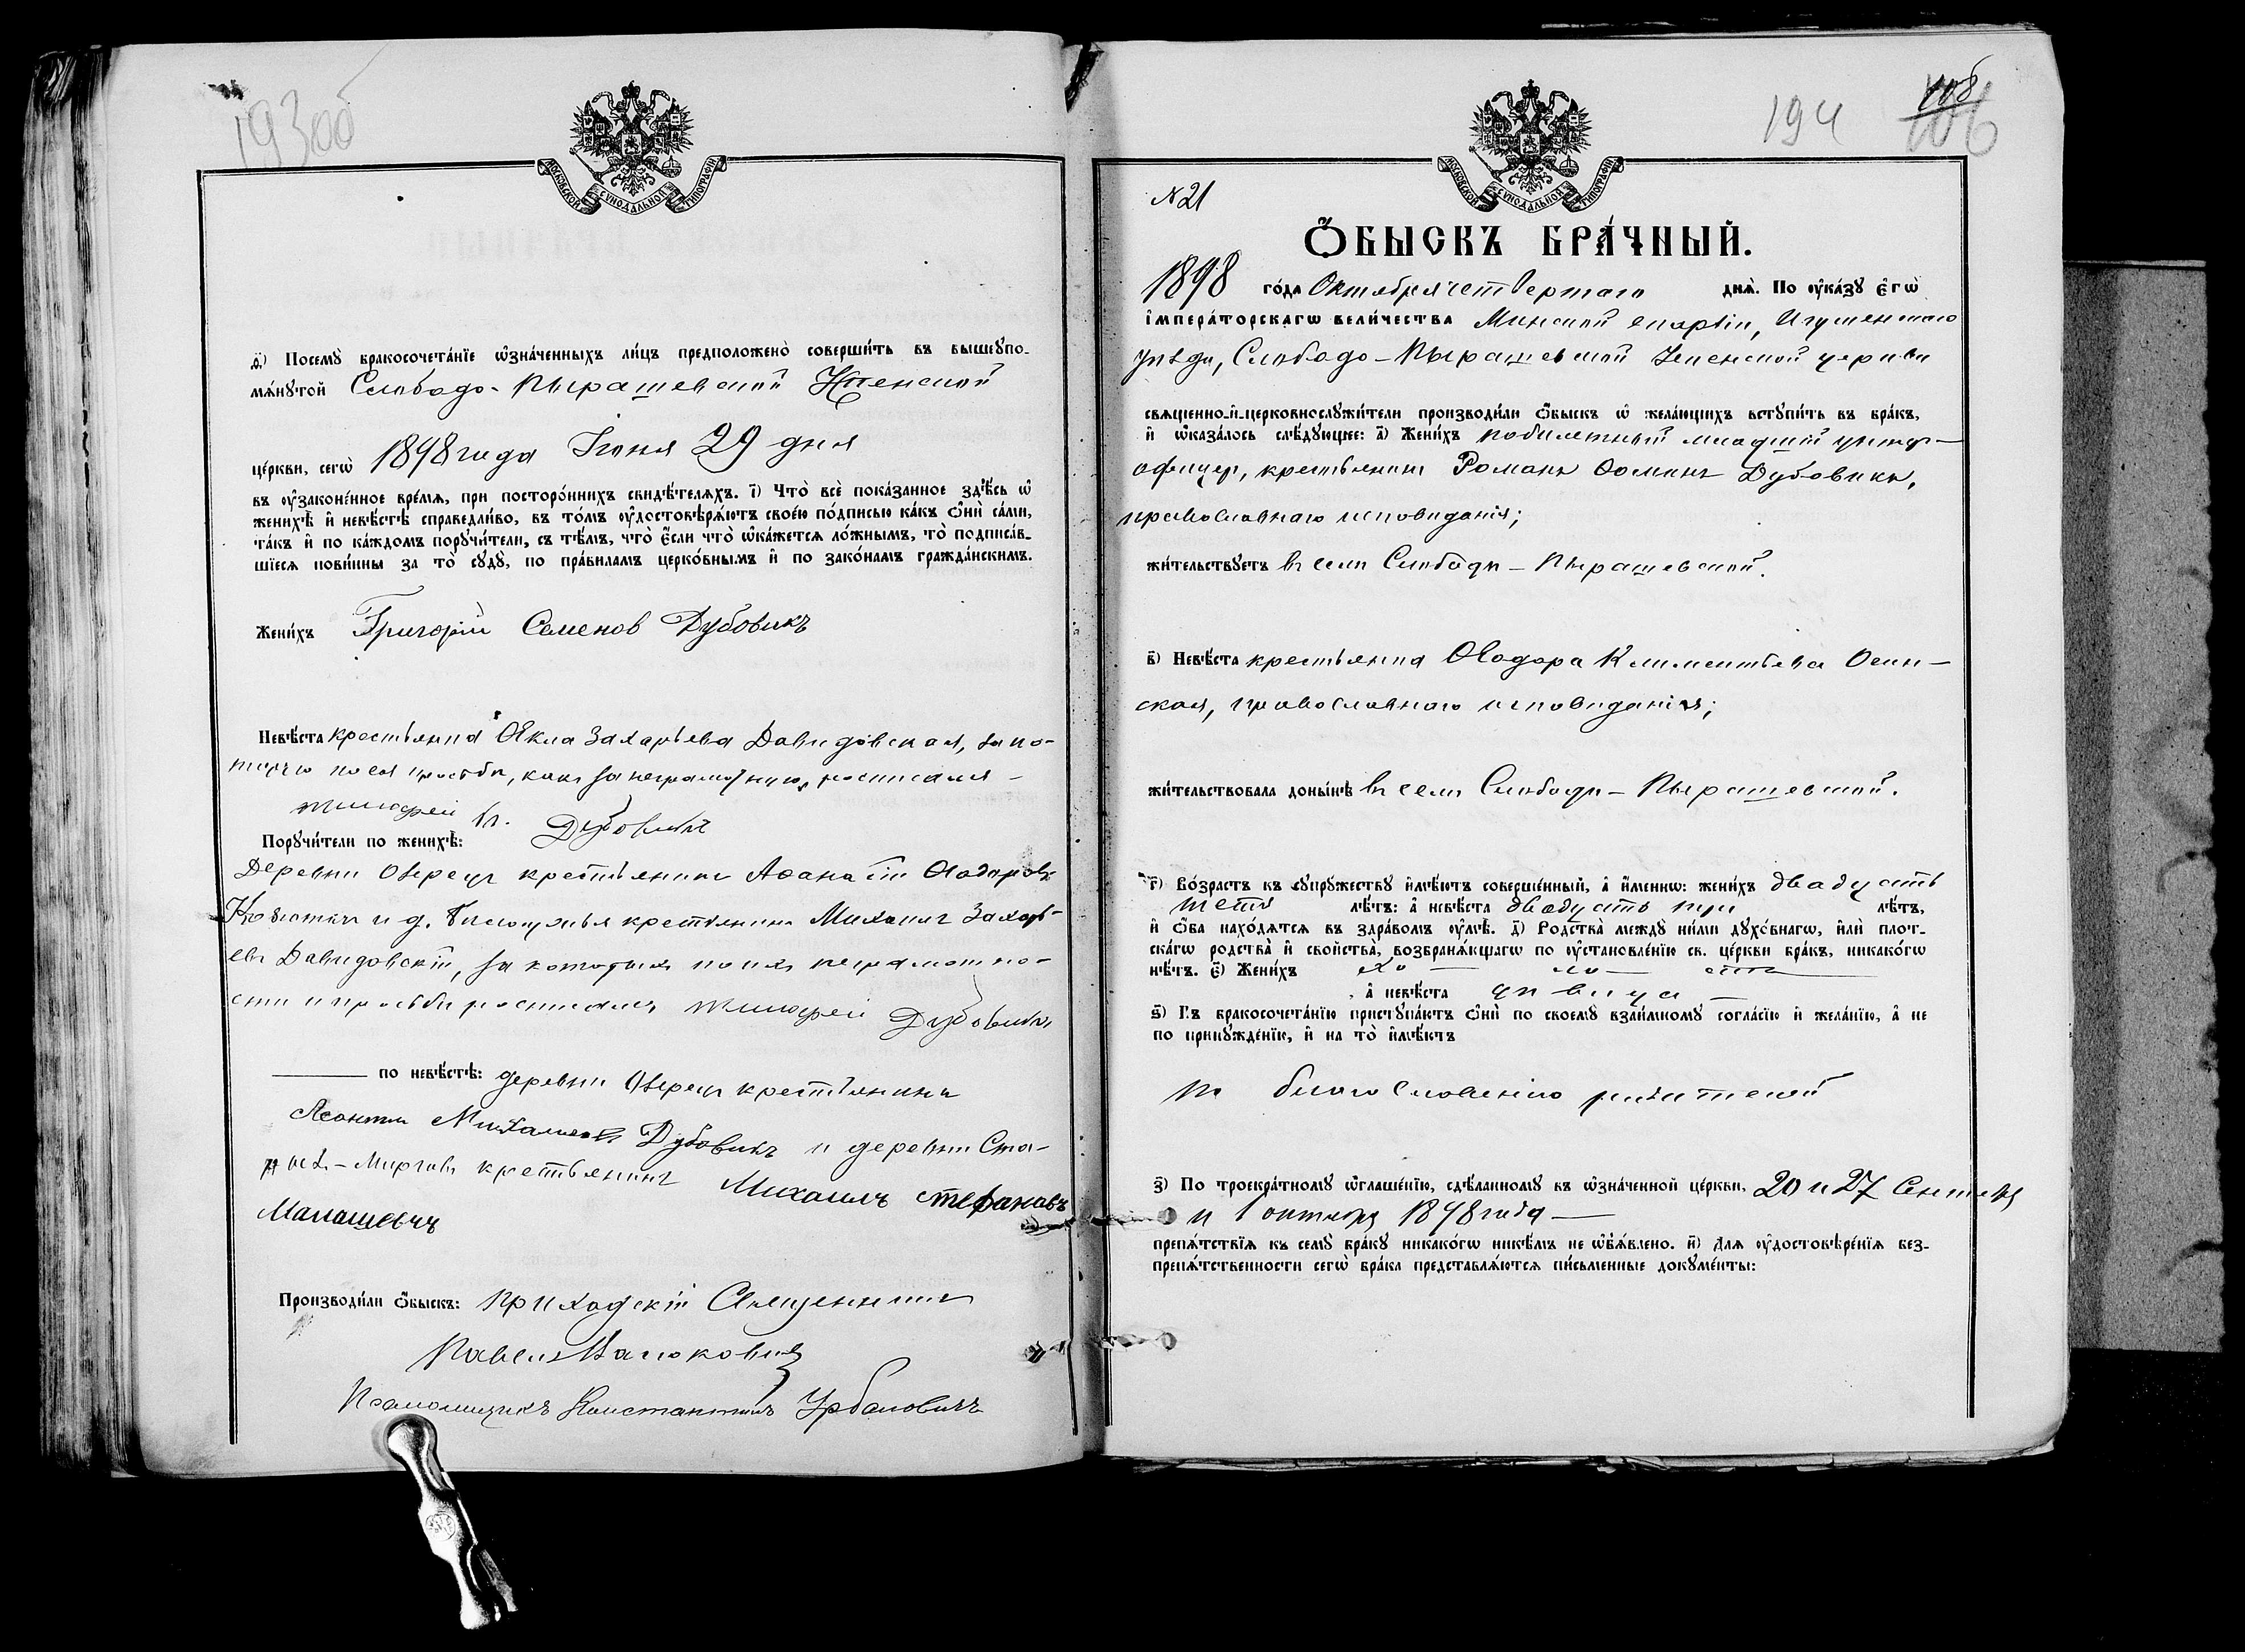 193об
МОСКОВСКОЙ СѴНОДАЛЬНОЙ ТИПОГРАФІИ
ѳ҃) Посемꙋ̀ бракосочета́нїе ѡ҆зна́ченныхъ ли́цъ предположено̀ соверши́ть въ вышеꙋпо-
мѧ́нꙋтой Слободо-Пырашевской Успенской
це́ркви, сегѡ̀ 1898 года Іюня 29 дня
въ ᲂу҆зако́ненное вре́мѧ, при посторо́ннихъ свидѣ́телѧхъ. і҃) Что̀ всѐ пока́занное здѣ́сь ѡ҆
женихѣ̀ и҆ невѣ́стѣ справедли́во, въ то́мъ ᲂу҆достовѣрѧ́ютъ своє́ю по́дписью ка́къ ѻ҆нѝ са́ми,
та́къ и҆ по ка́ждомъ порꙋчи́тели, съ тѣ́мъ, что̀ є҆́сли что̀ ѡ҆ка́жетсѧ ло́жнымъ, то̀ подписа́в-
шїесѧ пови́нны за то̀ сꙋдꙋ̀, по пра́виламъ церко́внымъ и҆ по зако́намъ гражда́нскимъ.
Жени́хъ Григорій Семенов Дубовикъ
Невѣ́ста крестьянка Ѳекла Захарьева Давидовская, за ко-
торую по ея просьбѣ, какъ за неграмотную, росписался
Тимофей Дубовикъ
Порꙋчи́тели по женихѣ̀:
Деревни Озерецъ крестьянинъ Аѳанасій Ѳеодоровъ
и д. крестьянинъ Михаилъ Захарь-
евъ Давидовскій, за которыхъ по ихъ неграмотно-
сти и просьбѣ росписался Тимофей Дубовикъ
по невѣ́стѣ: деревни Озерецъ крестьянинъ
Леонтій Михайловъ Дубовикъ и деревни Ста-
крестьянинъ Михаилъ Стефановъ
Малашевичъ
Производи́ли ѻ҆́быскъ: Приходскій Священникъ
Павелъ
Псаломщикъ Константинъ Урбановичъ
194 106
МОСКОВСКОЙ СѴНОДАЛЬНОЙ ТИПОГРАФІИ
№ 21
Ѻ҆́БЫСКЪ БРА́ЧНЫЙ.
1898 го́да Октября четвертаго днѧ̀. По ᲂу҆ка́зꙋ є҆гѡ̀
і҆мпера́торскагѡ вели́чества Минской епархіи, Игуменскаго
уѣзда, Слободо-Пырашевской Успенской церкви
свѧщенно-и҆-церковнослꙋжи́тели производи́ли ѻ҆́быскъ ѡ҆ жела́ющихъ встꙋпи́ть въ бра́къ,
и҆ ѡ҆каза́лось слѣ́дꙋющее: а҃) Жени́хъ побилетный младшій унтер-
офицеръ, крестьянинъ Романъ Ѳоминъ Дубовикъ,
православнаго исповѣданія;
жи́тельствꙋетъ въ селѣ Слободѣ-Пырашевской.
в҃) Невѣ́ста крестьянка Ѳеодора Климентьева Осин-
ская, православнаго исповѣданія;
жи́тельствовала доны́нѣ въ селѣ Слободѣ-Пырашевской.
г҃) Во́зрастъ къ сꙋпрꙋ́жествꙋ и҆мѣ́ютъ соверше́нный, а҆ и҆́меннѡ: жени́хъ двадцать
пять лѣ́тъ: а҆ невѣ́ста двадцать три лѣ́тъ,
и҆ ѻ҆́ба нахо́дѧтсѧ въ здра́вомъ ᲂу҆мѣ̀. д҃) Родства̀ междꙋ̀ ни́ми дꙋхо́внагѡ, и҆лѝ плот-
ска́гѡ родства̀ и҆ свойства̀, возбранѧ́ющагѡ по ᲂу҆становле́нїю св. це́ркви бра́къ, никако́гѡ
нѣ́тъ. є҃) Жени́хъ хо — ло — стъ —
а҆ невѣ́ста дѣвица —
ѕ҃) Къ бракосочета́нїю пристꙋпа́ютъ ѻ҆нѝ по своемꙋ̀ взаи́мномꙋ согла́сїю и҆ жела́нїю, а҆ не
по принꙋжде́нїю, и҆ на то̀ и҆мѣ́ютъ
по благословенію родителей
з҃) По троекра́тномꙋ ѡ҆глаше́нїю, сдѣ́ланномꙋ въ ѡ҆зна́ченной це́ркви, 20 и 27 Сентября
и 1 октября 1898 года —
препѧ́тствїѧ къ семꙋ̀ бра́кꙋ никако́гѡ никѣ́мъ не ѡ҆б̾ѧ́влено. и҃) Длѧ ᲂу҆достовѣре́нїѧ без-
препѧ́тственности сегѡ̀ бра́ка представлѧ́ютсѧ пи́сьменные докꙋме́нты: